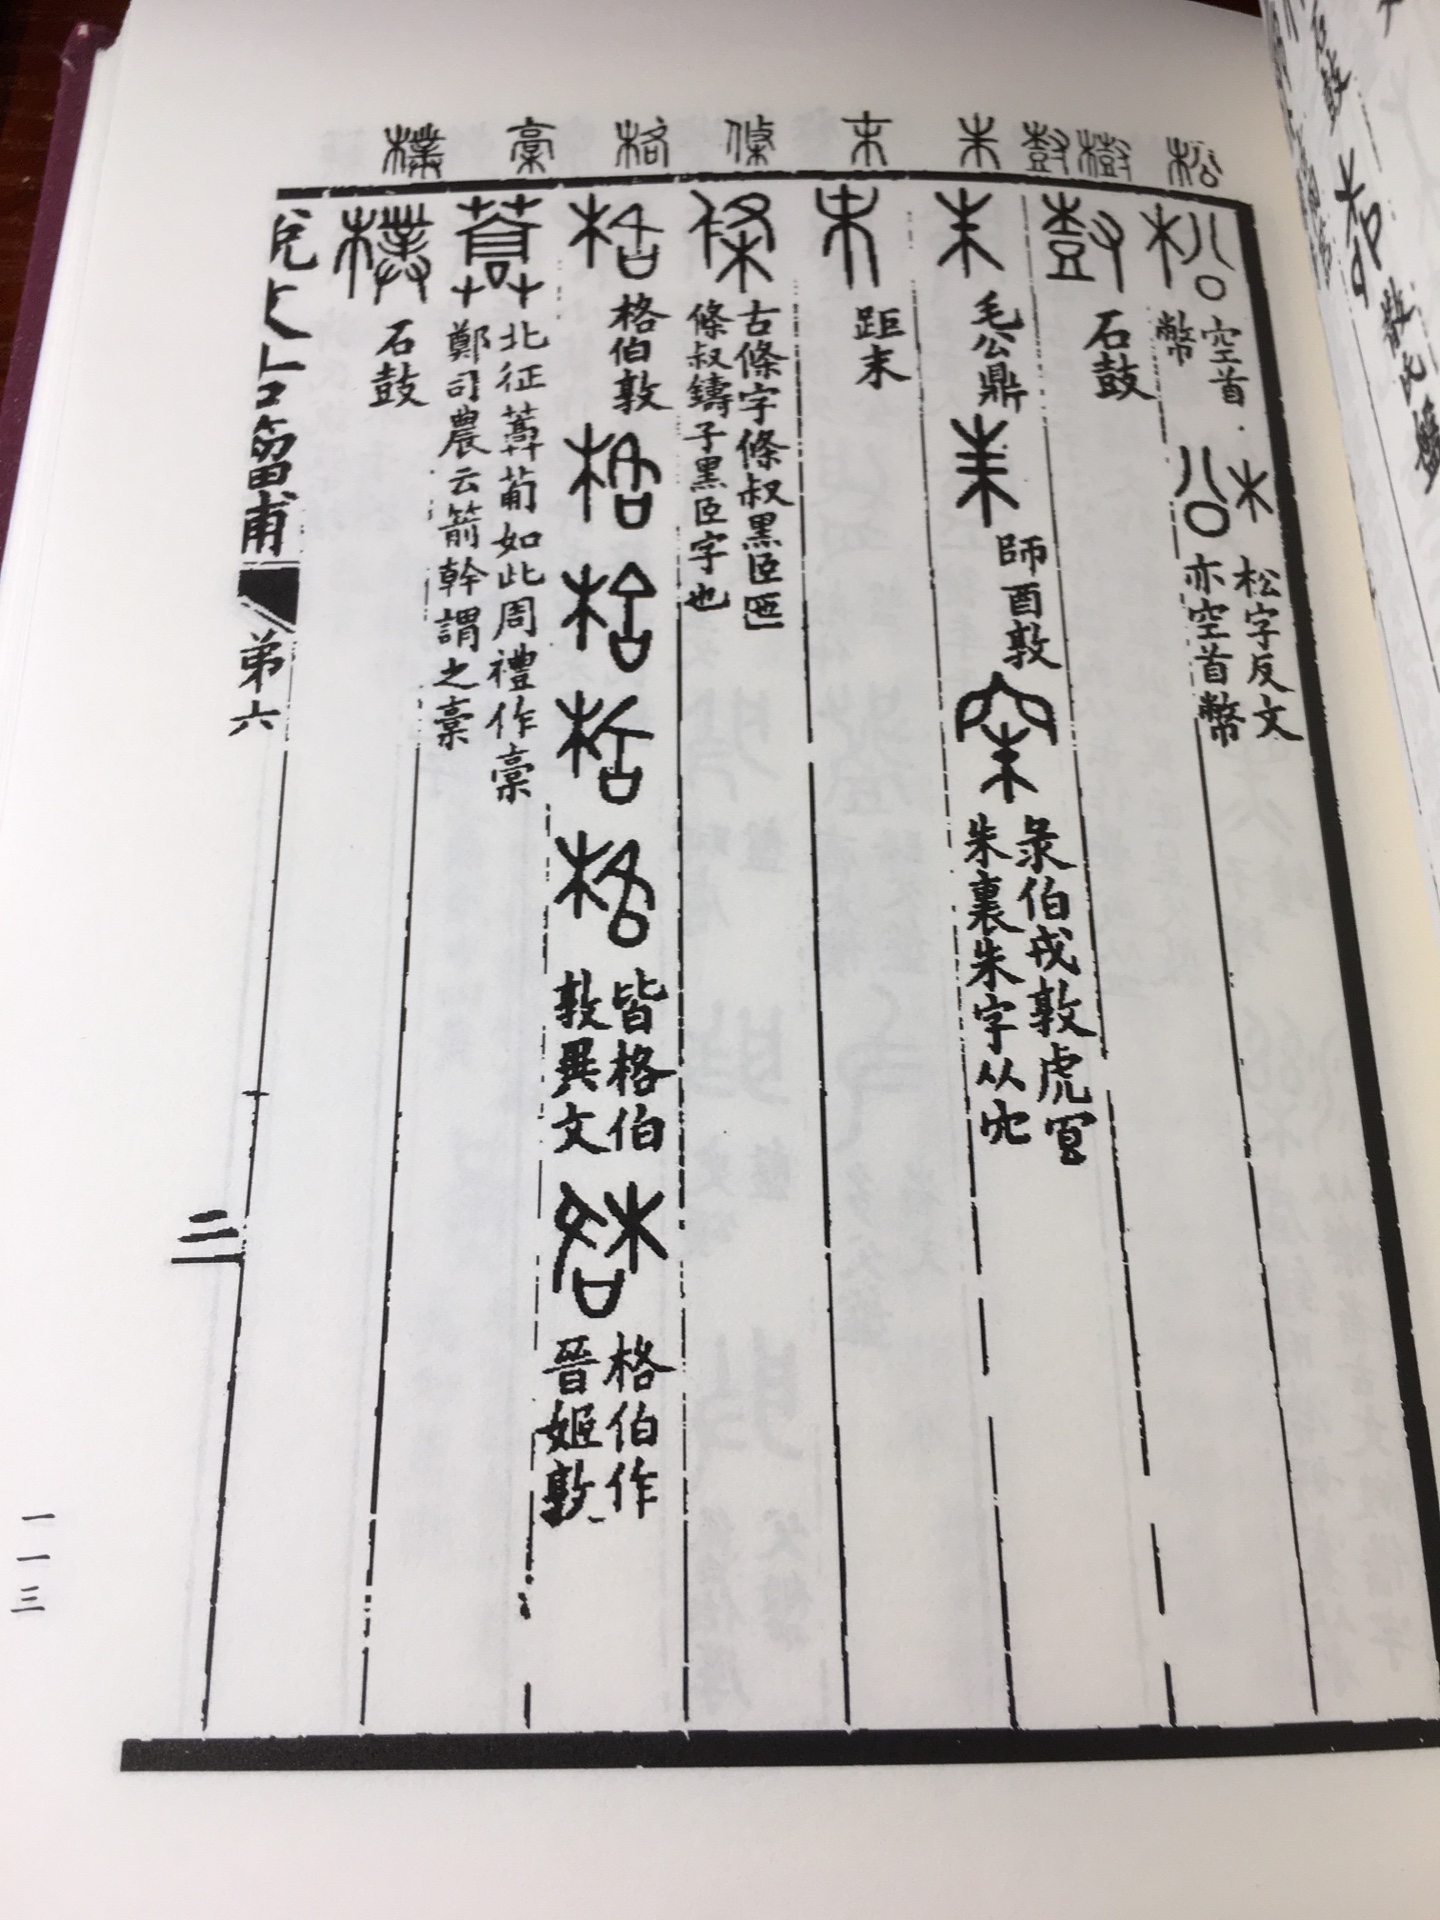 松
樹
尌
朱
末
條
格
槀
樸
松
空首
幣
松
松字反文
亦空首幣
尌
石鼓
朱
毛公鼎
朱
師酉敦
彔伯戎敦虎冟
朱裏朱字从穴
末
距末
條
古條字條叔黑臣匜
條叔鑄子黑臣字也
格
格伯敦
格
格
格
格
皆格伯
敦異文
格
格伯作
晉姬敦
北征蒿萮如此周禮作槀
鄭司農云箭幹謂之槀
樸
石鼓
說文古籀補
弟六
二
一一三